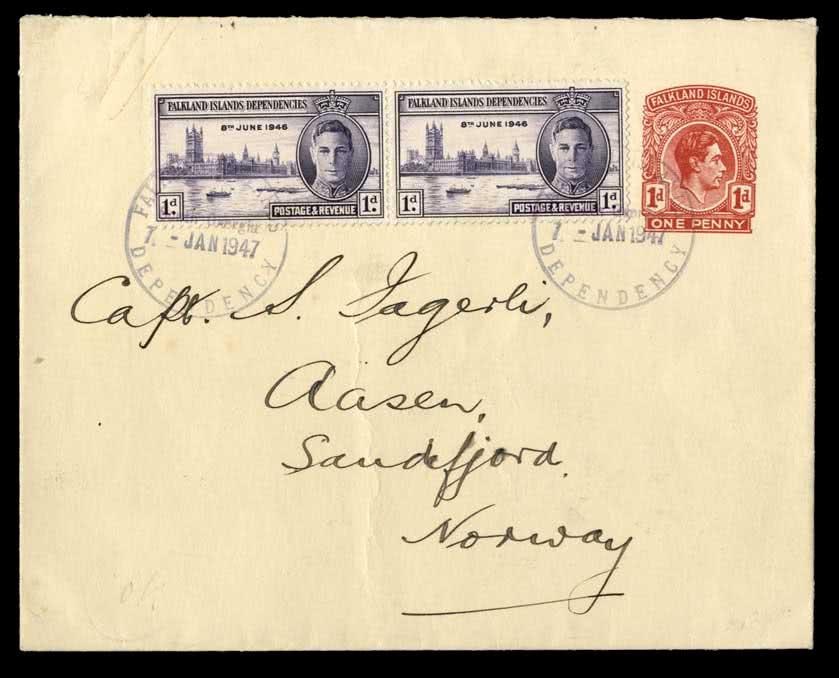 FALKLAND ISLANDS DEPENDENCIES
8TH JUNE 1946
1d
1d
POSTAGE & REVENUE
FALKLAND ISLANDS DEPENDENCIES
8TH JUNE 1946
1d
1d
POSTAGE & REVENUE
FALKLAND ISLANDS
1d
1d
ONE PENNY
JAN 1947
DEPENDENCY
JAN 1947
DEPENDENCY
Capt. S. Fagerli,
Aasen,
Sandefjord.
Norway